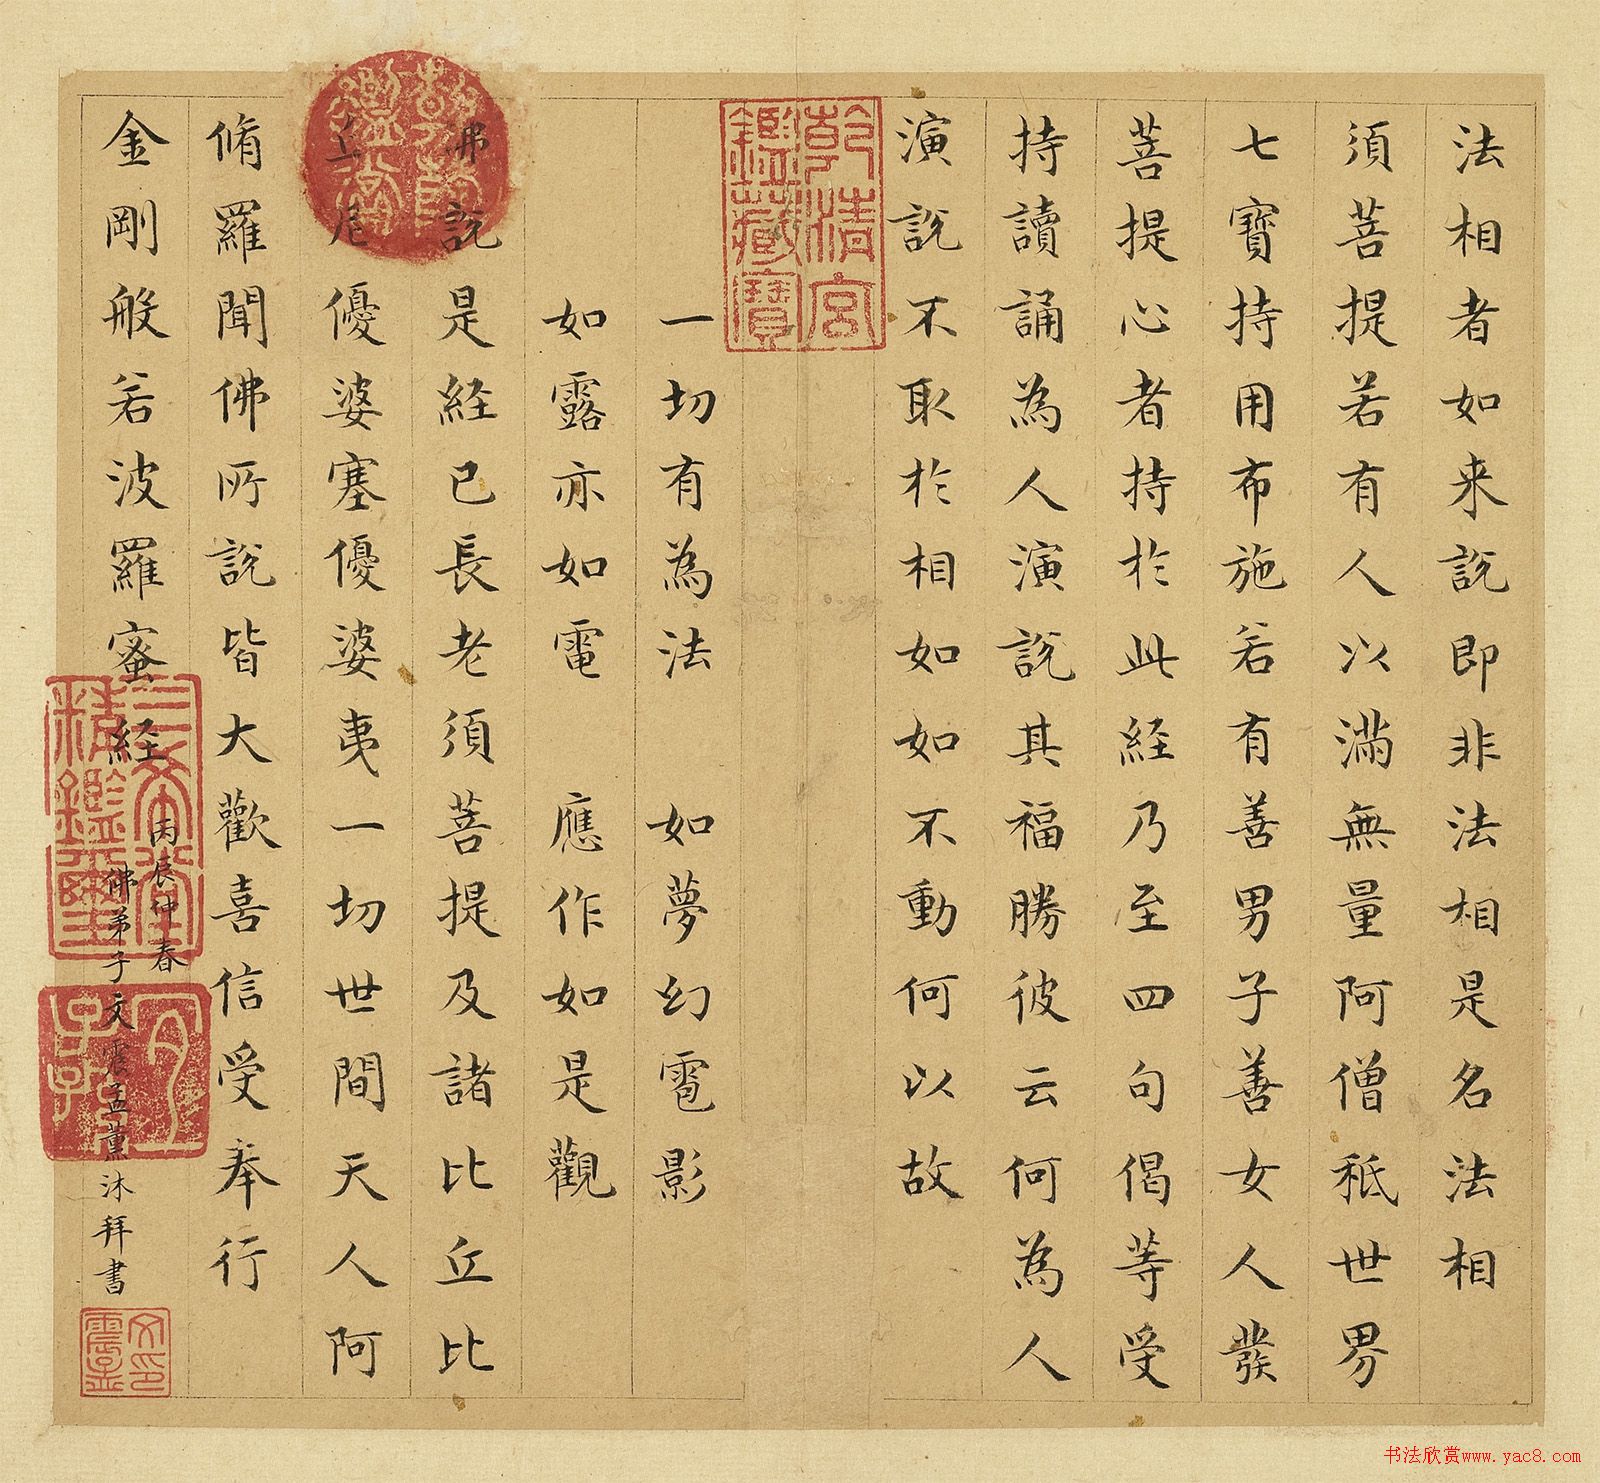 法相者如来說即非法相是名法相
須菩提若有人以滿無量阿僧祇世界
七寶持用布施若有善男子善女人發
菩提心者持於此経乃至四句偈等受
持讀誦為人演說其福勝彼云何為人
演說不取於相如如不動何以故
乾清宮
鑑藏寶
一切有為法　如夢幻雹影
如露亦如電　應作如是觀
佛說是経已長老須菩提及諸比丘比
丘尼優婆塞優婆夷一切世間天人阿
嘉慶
鑑賞
脩羅聞佛所說皆大歡喜信受奉行
金剛般若波羅蜜経
丙辰仲春
佛弟子文震孟薰沐拜書
三希堂
精鑑璽
宜
子孫
文印
震孟
书法欣赏www.yac8.com